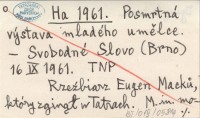 Ha 1961. Posmrtná
výstava mladého umělce.
– Svobodné Slovo (Brno)
16 IX 1961. TNP
Rzeźbiarz Eugen Macků,
który zginął w Tatrach. M. in. mo-